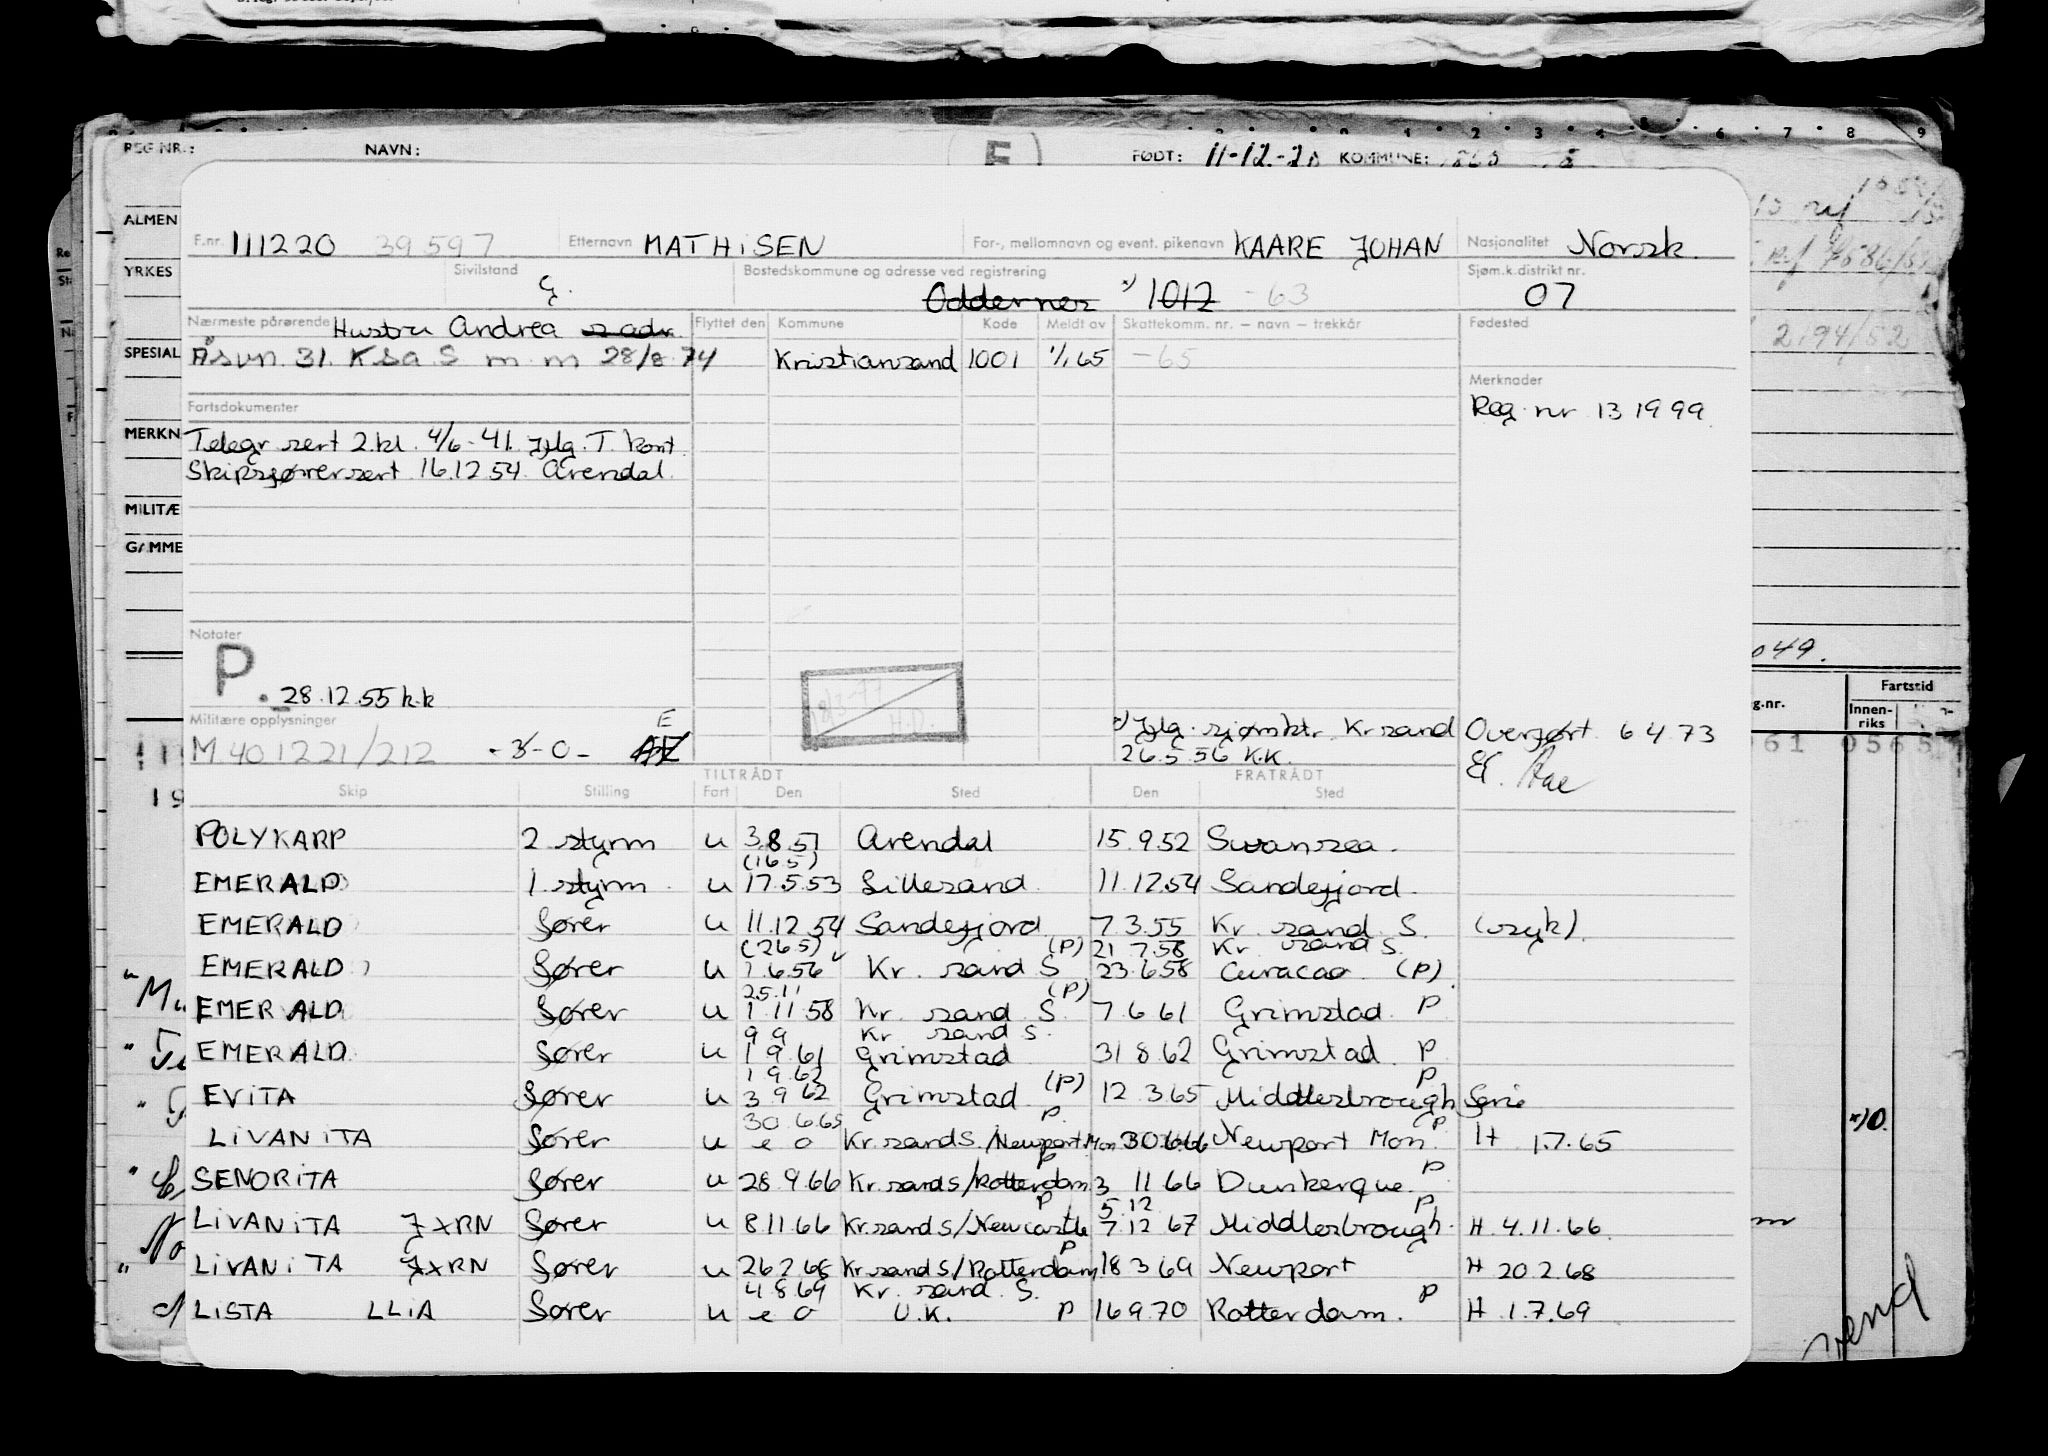 REG NR.: NAVN: FØDT: 11-12.-20 KOMMUNE:
ALMEN
YRKES
SPESIAL
MERKN
MILITÆ
GAMME
F.nr. 111220 39597 Etternavn MATHISEN For-, mellomnavn og event. pikenavn KAARE JOHAN Nasjonalitet Norsk.
Sivilstand G. Bostedskommune og adresse ved registrering Oddernes x) 1012 -63 Sjøm.k.distrikt nr. 07
Nærmeste pårørende Hustru Andrea s adr. Flyttet den Kommune Kode Meldt av Skattekomm. nr. – navn – trekkår Fødested
Åsvn. 31. K.sa S m m 28/8 74 Kristiansand 1001 1/1 65 -65
2194/52
Merknader
Reg. nr 131999
Fartsdokumenter
Telegr sert 2.kl. 4/6-41. Jflg. T. kont.
Skipsførersert. 16.12 54. Arendal.
Notater
P.
28.12.55 k.k
049.
18/3-77
H.D.
Militære opplysninger
M 401221/212 - 3 - 0 - E
x) Jflg. sjømktr. Kr sand
26.5.56 K.K.
Overført 6 4 73
g.nr. Fartstid
Innen-riks
061 0565
Skip Stilling TILTRÅDT Fart Den Sted FRATRÅDT Den Sted
POLYKARP 2 styrm u 3.8.51 Arendal 15.9.52 Swansea.
(16.5)
EMERALD 1 styrm. u 17.5.53 Lillesand. 11.12.54 Sandefjord.
EMERALD fører u 11.12.54 Sandefjord 7.3.55 Kr. sand. S. (syk).
(26.5) (P) 21 7.58 Kr. sand S.
EMERALD fører u 1.6.56 Kr. sand S 23.6.58 Curacao. (P).
25.11 (P)
EMERALD fører u 1.11.58 Kr. sand. S. 7.6 61 Grimstad. P
9 9 Kr sand S.
EMERALD. fører u 1 9.61 Grimstad 31 8.62 Grimstad. P
1 9.62 (P) P
EVITA fører u 3 9 62 Grimstad 12.3.65 Middlesbrough Serie
30.6.65 P. P
LIVANITA fører u e o Kr.sand S./Newport Mon 30.6.66 Newport Mon. H 1.7.65
P P
SENORITA fører u 28.9.66 Kr. sand S/Rotterdam 3 11 66 Dunkerque.
P 5.12 P
LIVANITA JXRN fører u 8.11.66 Kr.sand S/Newcastle 7.12 67 Middlesbrough. H 4.11.66.
P
LIVANITA JXRN fører u 26.2.68 Kr.sand S/Rotterdam 18 3 69 Newport H 20.2.68
4.8.69 Kr. sand. S. P
LISTA LLIA fører u e o U.K. P 16 9.70 Rotterdam. H 1.7.69
x)0.
vend